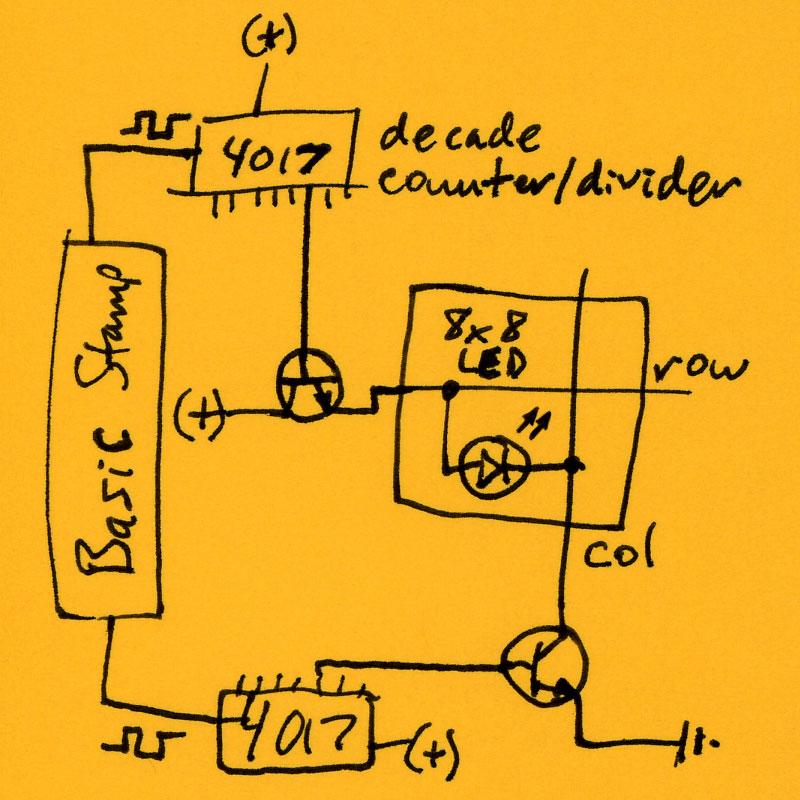 (+)
4017
decade
counter/divider
Basic Stamp
8x8
LED
row
(+)
col
4017
(+)